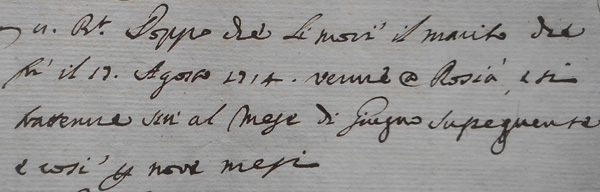 n. Rt. Doppo che li morì il marito che
fù il 19. Agosto 1714. venne @ Rosia, e si
trattenne sin' al Mese di Giugno susseguente
e così p nove mesi